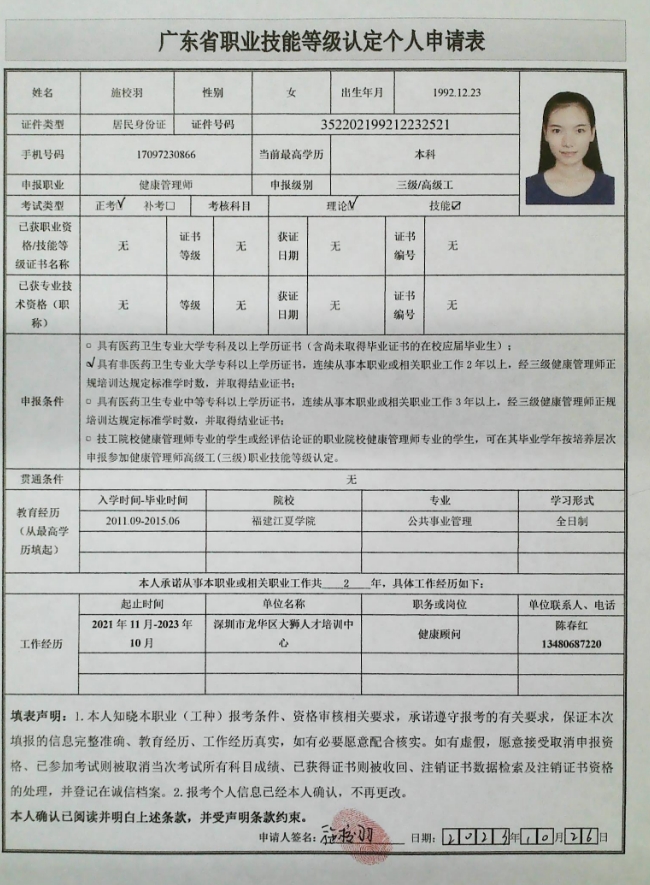 广东省职业技能等级认定个人申请表
姓名 施校羽 性别 女 出生年月 1992.12.23
证件类型 居民身份证 证件号码 352202199212232521
手机号码 17097230866 当前最高学历 本科
申报职业 健康管理师 申报级别 三级/高级工
考试类型 正考☑ 补考□ 考核科目 理论☑ 技能☑
已获职业资格/技能等级证书名称 无 证书等级 无 获证日期 无 证书编号 无
已获专业技术资格（职称） 无 等级 无 获证日期 无 证书编号 无
申报条件
□ 具有医药卫生专业大学专科及以上学历证书（含尚未取得毕业证书的在校应届毕业生）；
☑ 具有非医药卫生专业大学专科以上学历证书，连续从事本职业或相关职业工作 2 年以上，经三级健康管理师正
规培训达规定标准学时数，并取得结业证书；
□ 具有医药卫生专业中等专科以上学历证书，连续从事本职业或相关职业工作 3 年以上，经三级健康管理师正规
培训达规定标准学时数，并取得结业证书；
□ 技工院校健康管理师专业的学生或经评估论证的职业院校健康管理师专业的学生，可在其毕业学年按培养层次
申报参加健康管理师高级工(三级)职业技能等级认定。
贯通条件 无
教育经历（从最高学历填起）
入学时间-毕业时间 院校 专业 学习形式
2011.09-2015.06 福建江夏学院 公共事业管理 全日制
本人承诺从事本职业或相关职业工作共 2 年，具体工作经历如下：
工作经历
起止时间 单位名称 职务或岗位 单位联系人、电话
2021 年 11 月-2023 年 10 月 深圳市龙华区大狮人才培训中心 健康顾问 陈春红 13480687220
填表声明：1.本人知晓本职业（工种）报考条件、资格审核相关要求，承诺遵守报考的有关要求，保证本次
填报的信息完整准确、教育经历、工作经历真实，如有必要愿意配合核实。如有虚假，愿意接受取消申报资
格、已参加考试则被取消当次考试所有科目成绩、已获得证书则被收回、注销证书数据检索及注销证书资格
的处理，并登记在诚信档案。2.报考个人信息已经本人确认，不再更改。
本人确认已阅读并明白上述条款，并受声明条款约束。
申请人签名：施校羽 日期：2023年10月26日